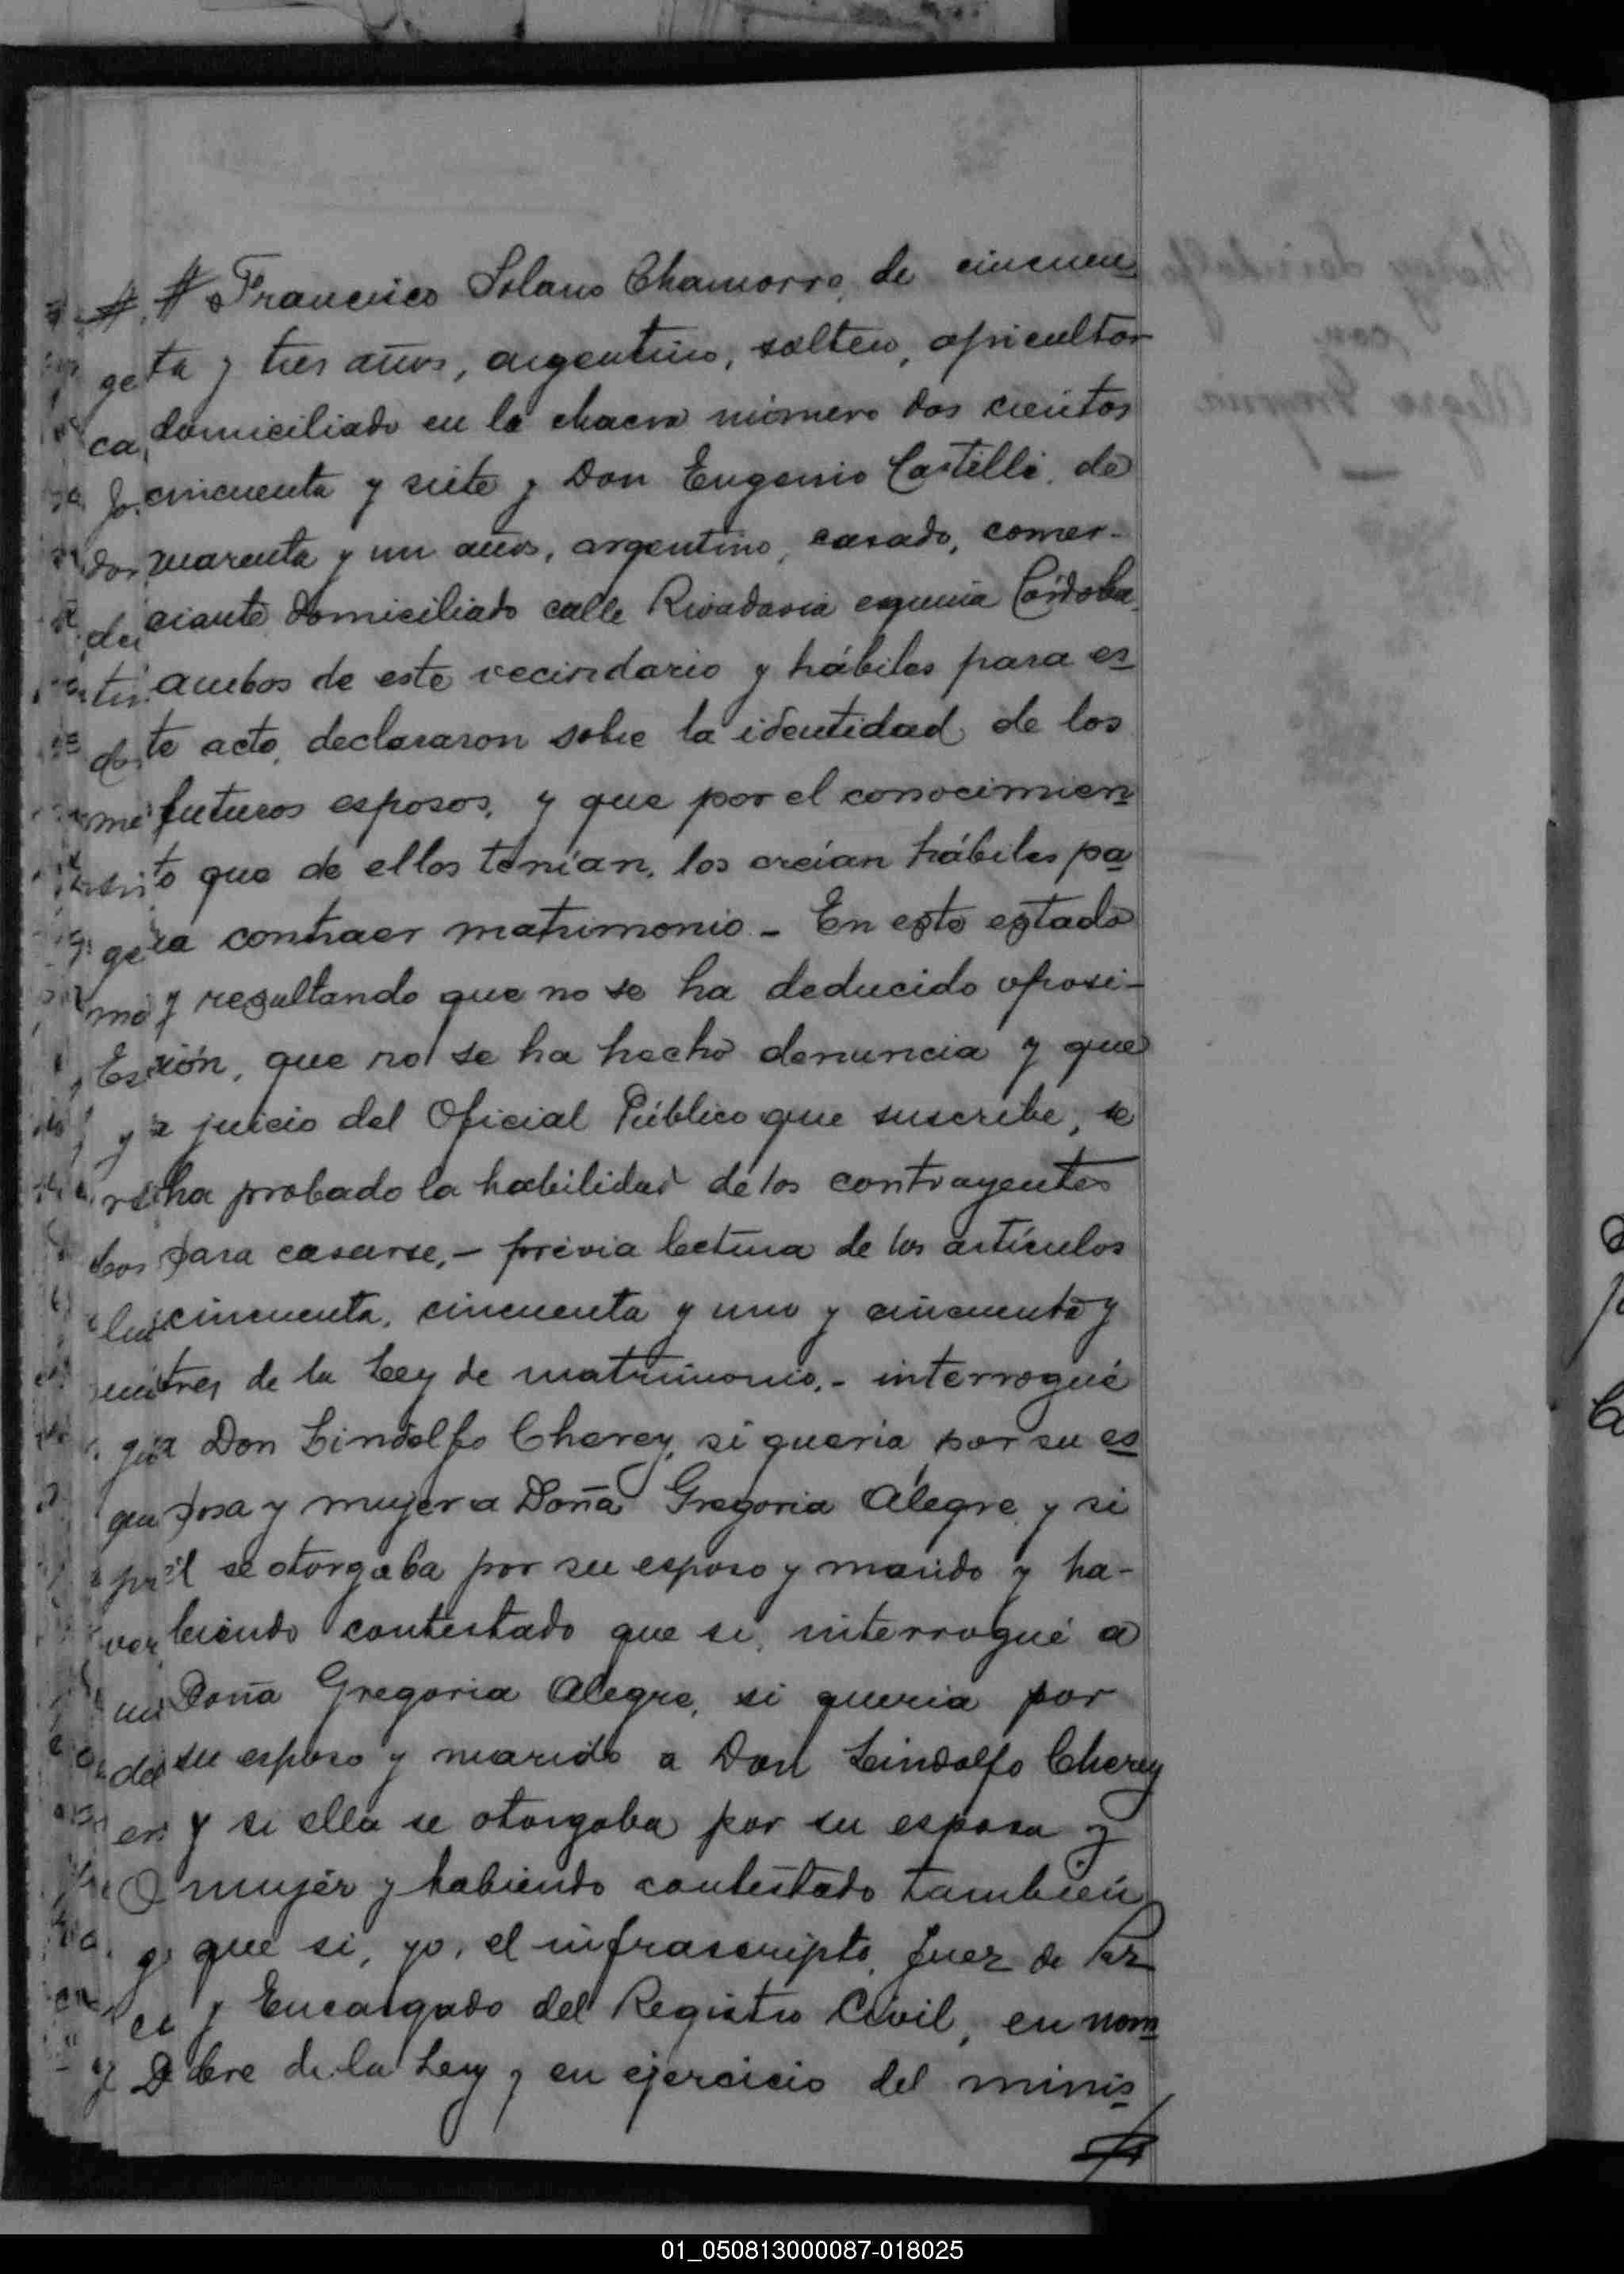 # Francisco Solano Chamorro, de cincuen
ta y tres años, argentino, soltero, apicultor
domiciliado en la chacra número dos cientos
cincuenta y siete y Don Eugenio Castelli, de
cuarenta y un años, argentino, casado, comer-
ciante domiciliado calle Rivadavia esquina Córdoba,
ambos de este vecindario y hábiles para es
te acto, declararon sobre la identidad de los
futuros esposos, y que por el conocimien
to que de ellos tenían, los creían hábiles pa
ra contraer matrimonio - En este estado
y resultando que no se ha deducido oposi-
ción, que no se ha hecho denuncia y que
a juicio del Oficial Público que suscribe, se
ha probado la habilidad de los contrayentes
para casarse, - previa lectura de los artículos
cincuenta, cincuenta y uno y cincuenta y
tres de la Ley de matrimonio, - interrogué
a Don Lindolfo Cherey, si quería por su es
posa y mujer a Doña Gregoria Alegre, y si
él se otorgaba por su esposo y marido y ha-
biendo contestado que si, interrogué a
Doña Gregoria Alegre, si quería por
su esposo y marido a Don Lindolfo Cherey
y si ella se otorgaba por su esposa y
mujer y habiendo contestado también
que si, yo, el infrascripto, Juez de Paz
y Encargado del Registro Civil, en nom
bre de la Ley y en ejercicio del minis
#
01_050813000087-018025